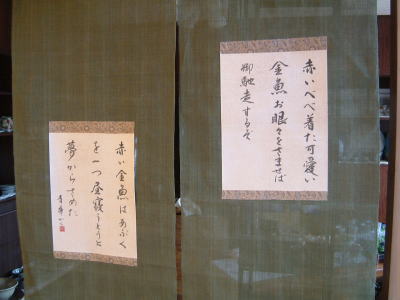 赤いべべ着た可愛い
金魚お眼々をさませば
御馳走するぞ
赤い金魚はあぶく
を一つ昼寝うとうと
夢からさめた